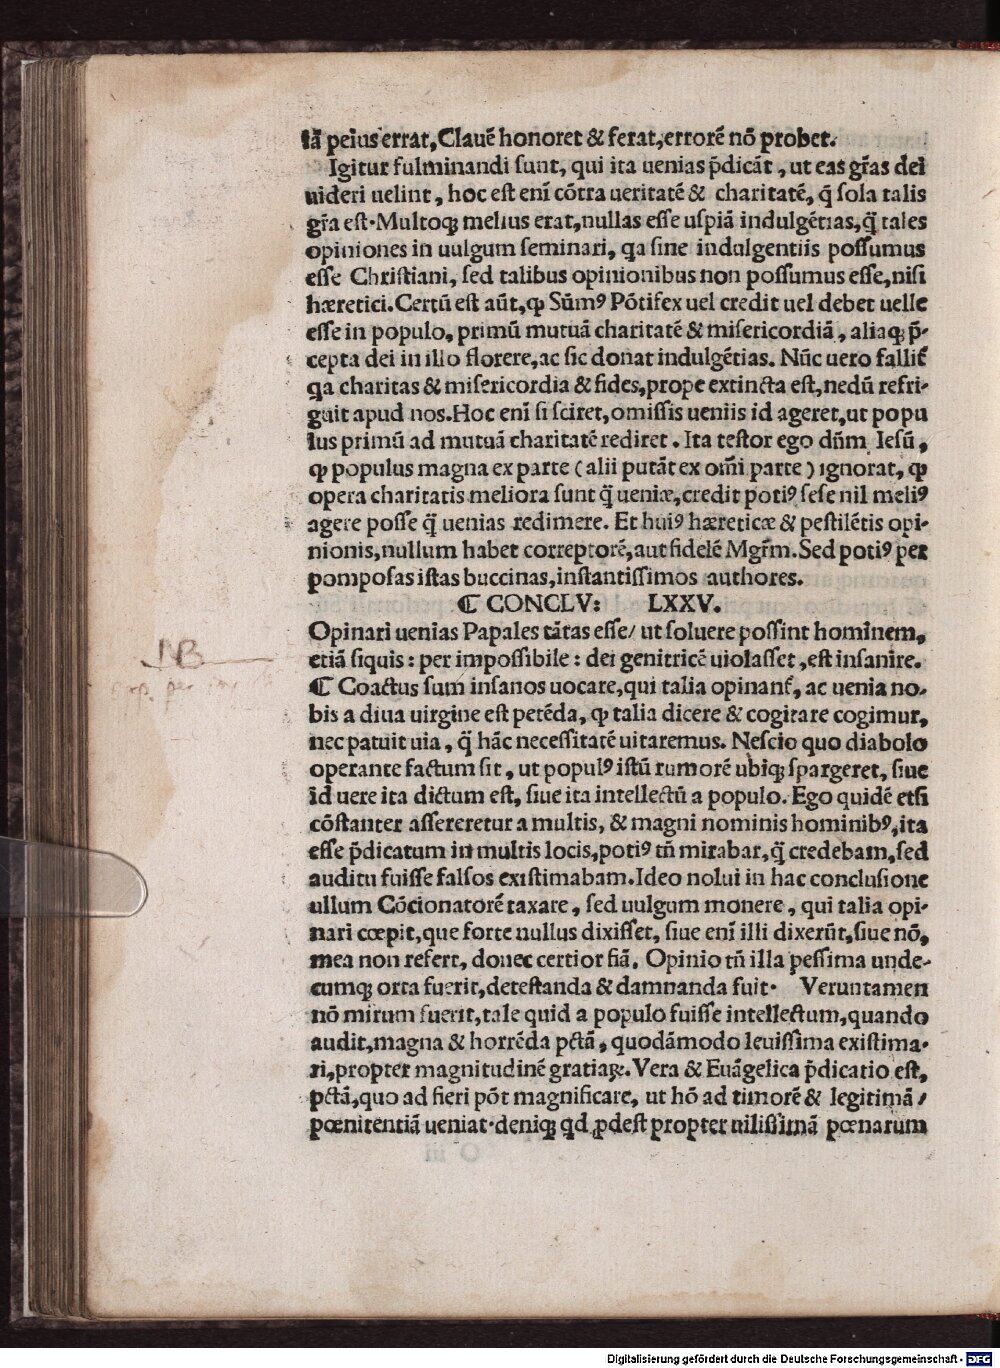 iã peius errat, Clauẽ honoret & ferat, errorẽ nõ probet.
Igitur fulminandi ſunt, qui ita uenias p̃dicãt, ut eas gr̃as dei
uideri uelint, hoc eſt eni᷑ cõtra ueritatẽ & charitatẽ, q̃ ſola talis
gr̃a eſt·Multoqꝫ melius erat, nullas eſſe uſpiã indulgẽtias, q̃ tales
opiniones in uulgum ſeminari, qa ſine indulgentiis poſſumus
eſſe Chriſtiani, ſed talibus opinionibus non poſſumus eſſe, niſi
hæretici. Certũ eſt aũt, ꝙ Sũmꝰ Põtifex uel credit uel debet uelle
eſſe in populo, primũ mutuã charitatẽ & miſericordiã, aliaqꝫ p̃-
cepta dei in illo florere, ac ſic donat indulgẽtias. Nũc uero fallit᷑
qa charitas & miſericordia & fides, prope extincta eſt, nedũ refri-
guit apud nos. Hoc eni᷑ ſi ſciret, omiſſis ueniis id ageret, ut popu
lus primũ ad mutuã charitatẽ rediret. Ita teſtor ego dñm Ieſũ,
ꝙ populus magna ex parte (alii putãt ex om̃i parte) ignorat, ꝙ
opera charitatis meliora ſunt q̃ ueniæ, credit potiꝰ ſeſe nil meliꝰ
agere poſſe q̃ uenias redimere. Et huiꝰ hæreticæ & peſtilẽtis opi-
nionis, nullum habet correptorẽ, aut fidelẽ Mgr̃m. Sed potiꝰ per
pompoſas iſtas buccinas, inſtantiſſimos authores.
⁋ CONCLV: LXXV.
Opinari uenias Papales tãtas eſſe/ ut ſoluere poſſint hominem,
etiã ſiquis: per impoſſibile: dei genitricẽ uiolaſſet, eſt inſanire.
NB
⁋ Coactus ſum inſanos uocare, qui talia opinant᷑, ac uenia no-
bis a diua uirgine eſt petẽda, ꝙ talia dicere & cogitare cogimur,
nec patuit uia, q̃ hãc neceſſitatẽ uitaremus. Neſcio quo diabolo
operante factum ſit, ut populꝰ iſtũ rumorẽ ubiqꝫ ſpargeret, ſiue
id uere ita dictum eſt, ſiue ita intellectũ a populo. Ego quidẽ etſi
cõſtanter aſſereretur a multis, & magni nominis hominibꝰ, ita
eſſe p̃dicatum in multis locis, potiꝰ tñ mirabar, q̃ credebam, ſed
auditu fuiſſe falſos exiſtimabam. Ideo nolui in hac concluſione
ullum Cõcionatorẽ taxare, ſed uulgum monere, qui talia opi-
nari cœpit, que forte nullus dixiſſet, ſiue eni᷑ illi dixerũt, ſiue nõ,
mea non refert, donec certior fiã. Opinio tñ illa peſſima unde-
cumqꝫ orta fuerit, deteſtanda & damnanda fuit· Veruntamen
nõ mirum fuerit, tale quid a populo fuiſſe intellectum, quando
audit, magna & horrẽda pctã, quodãmodo leuiſſima exiſtima-
ri, propter magnitudinẽ gratiaꝝ. Vera & Euãgelica p̃dicatio eſt,
pctã, quo ad fieri põt magnificare, ut hõ ad timorẽ & legitimã/
pœnitentiã ueniat·deniqꝫ qd ꝓdeſt propter uiliſſimã pœnarum
Digitalisierung gefördert durch die Deutsche Forschungsgemeinschaft - DFG